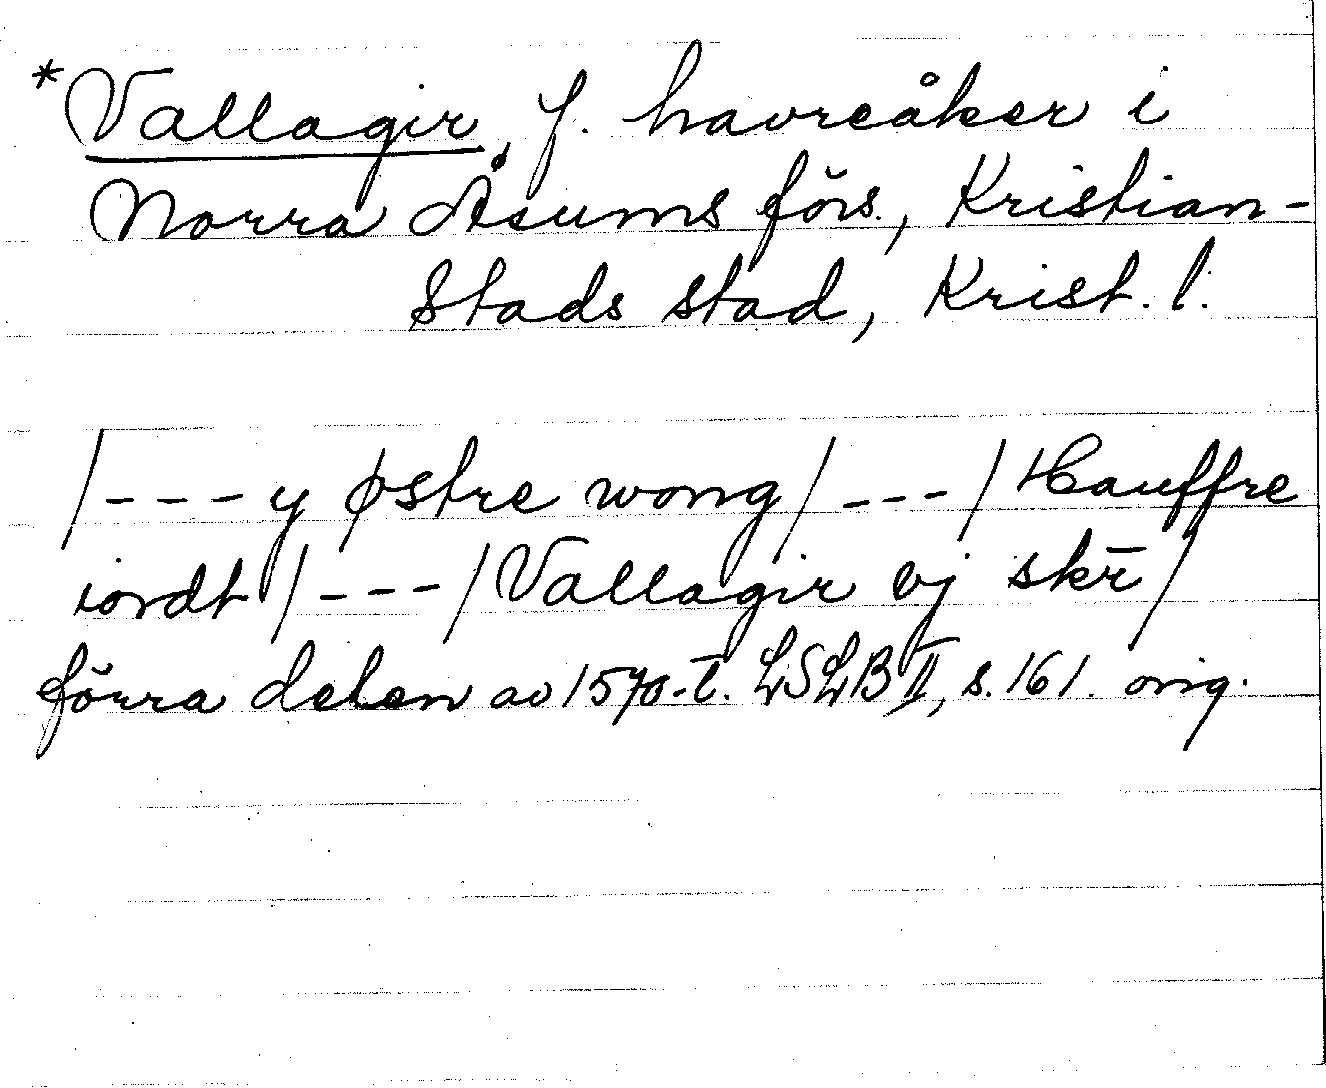 *Vallagir, f. havreåker i
Norra Åsums förs., Kristian-
stads stad, Krist. l.
/---y østre wong/---/Hauffre
iordt/---/Vallagir vj skr̄/
förra delen av 1570-t. LSLB II, s. 161. orig.